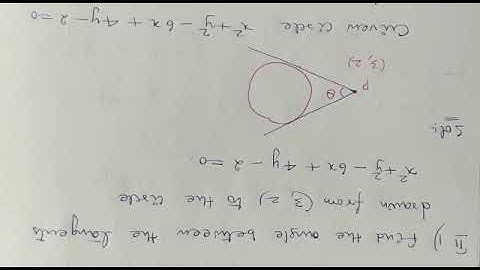 II 1) Find the angle between the tangents
drawn from (3, 2) to the circle
x²+y²-6x+4y-2=0.
Sol:
P
θ
(3, 2)
Given circle x²+y²-6x+4y-2=0